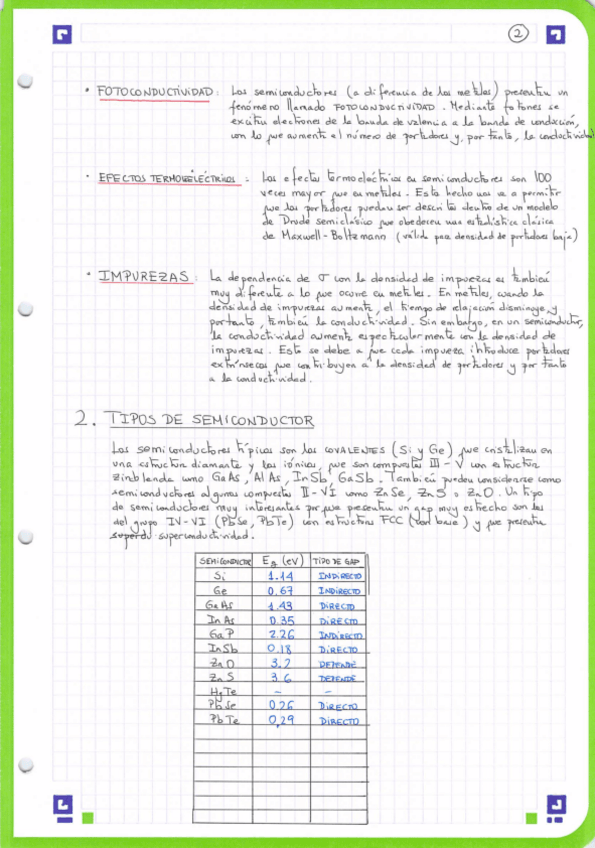 2
• FOTOCONDUCTIVIDAD: Los semiconductores (a diferencia de los metales) presentan un
fenómeno llamado FOTOCONDUCTIVIDAD. Mediante fotones se
excitan electrones de la banda de valencia a la banda de conducción,
con lo que aumenta el número de portadores y, por tanto, la conductividad
• EFECTOS TERMOELÉCTRICOS: Los efectos termoeléctricos en semiconductores son 100
veces mayor que en metales. Este hecho nos va a permitir
que los portadores puedan ser descritos dentro de un modelo
de Drude semiclásico que obedecen una estadística clásica
de Maxwell-Boltzmann (válida para densidad de portadores baja)
• IMPUREZAS: La dependencia de σ con la densidad de impurezas es también
muy diferente a lo que ocurre en metales. En metales, cuando la
densidad de impurezas aumenta, el tiempo de relajación disminuye y
por tanto, también la conductividad. Sin embargo, en un semiconductor,
la conductividad aumenta espectacularmente con la densidad de
impurezas. Esto se debe a que cada impureza introduce portadores
extrínsecos que contribuyen a la densidad de portadores y por tanto
a la conductividad.
2. TIPOS DE SEMICONDUCTOR
Los semiconductores típicos son los COVALENTES (Si y Ge) que cristalizan en
una estructura diamante y los iónicos, que son compuestos III-V con estructura
zincblenda como GaAs, AlAs, InSb, GaSb. También pueden considerarse como
semiconductores algunos compuestos II-VI como ZnSe, ZnS o ZnO. Un tipo
de semiconductores muy interesantes porque presentan un gap muy estrecho son los
del grupo IV-VI (PbSe, PbTe) con estructura FCC (con base) y que presentan
superconductividad.
SEMICONDUCTOR Eg (eV) TIPO DE GAP
Si 1.14 INDIRECTO
Ge 0.67 INDIRECTO
GaAs 1.43 DIRECTO
InAs 0.35 DIRECTO
GaP 2.26 INDIRECTO
InSb 0.18 DIRECTO
ZnO 3.2 DEPENDE
ZnS 3.6 DEPENDE
HgTe - -
PbSe 0.26 DIRECTO
PbTe 0,29 DIRECTO